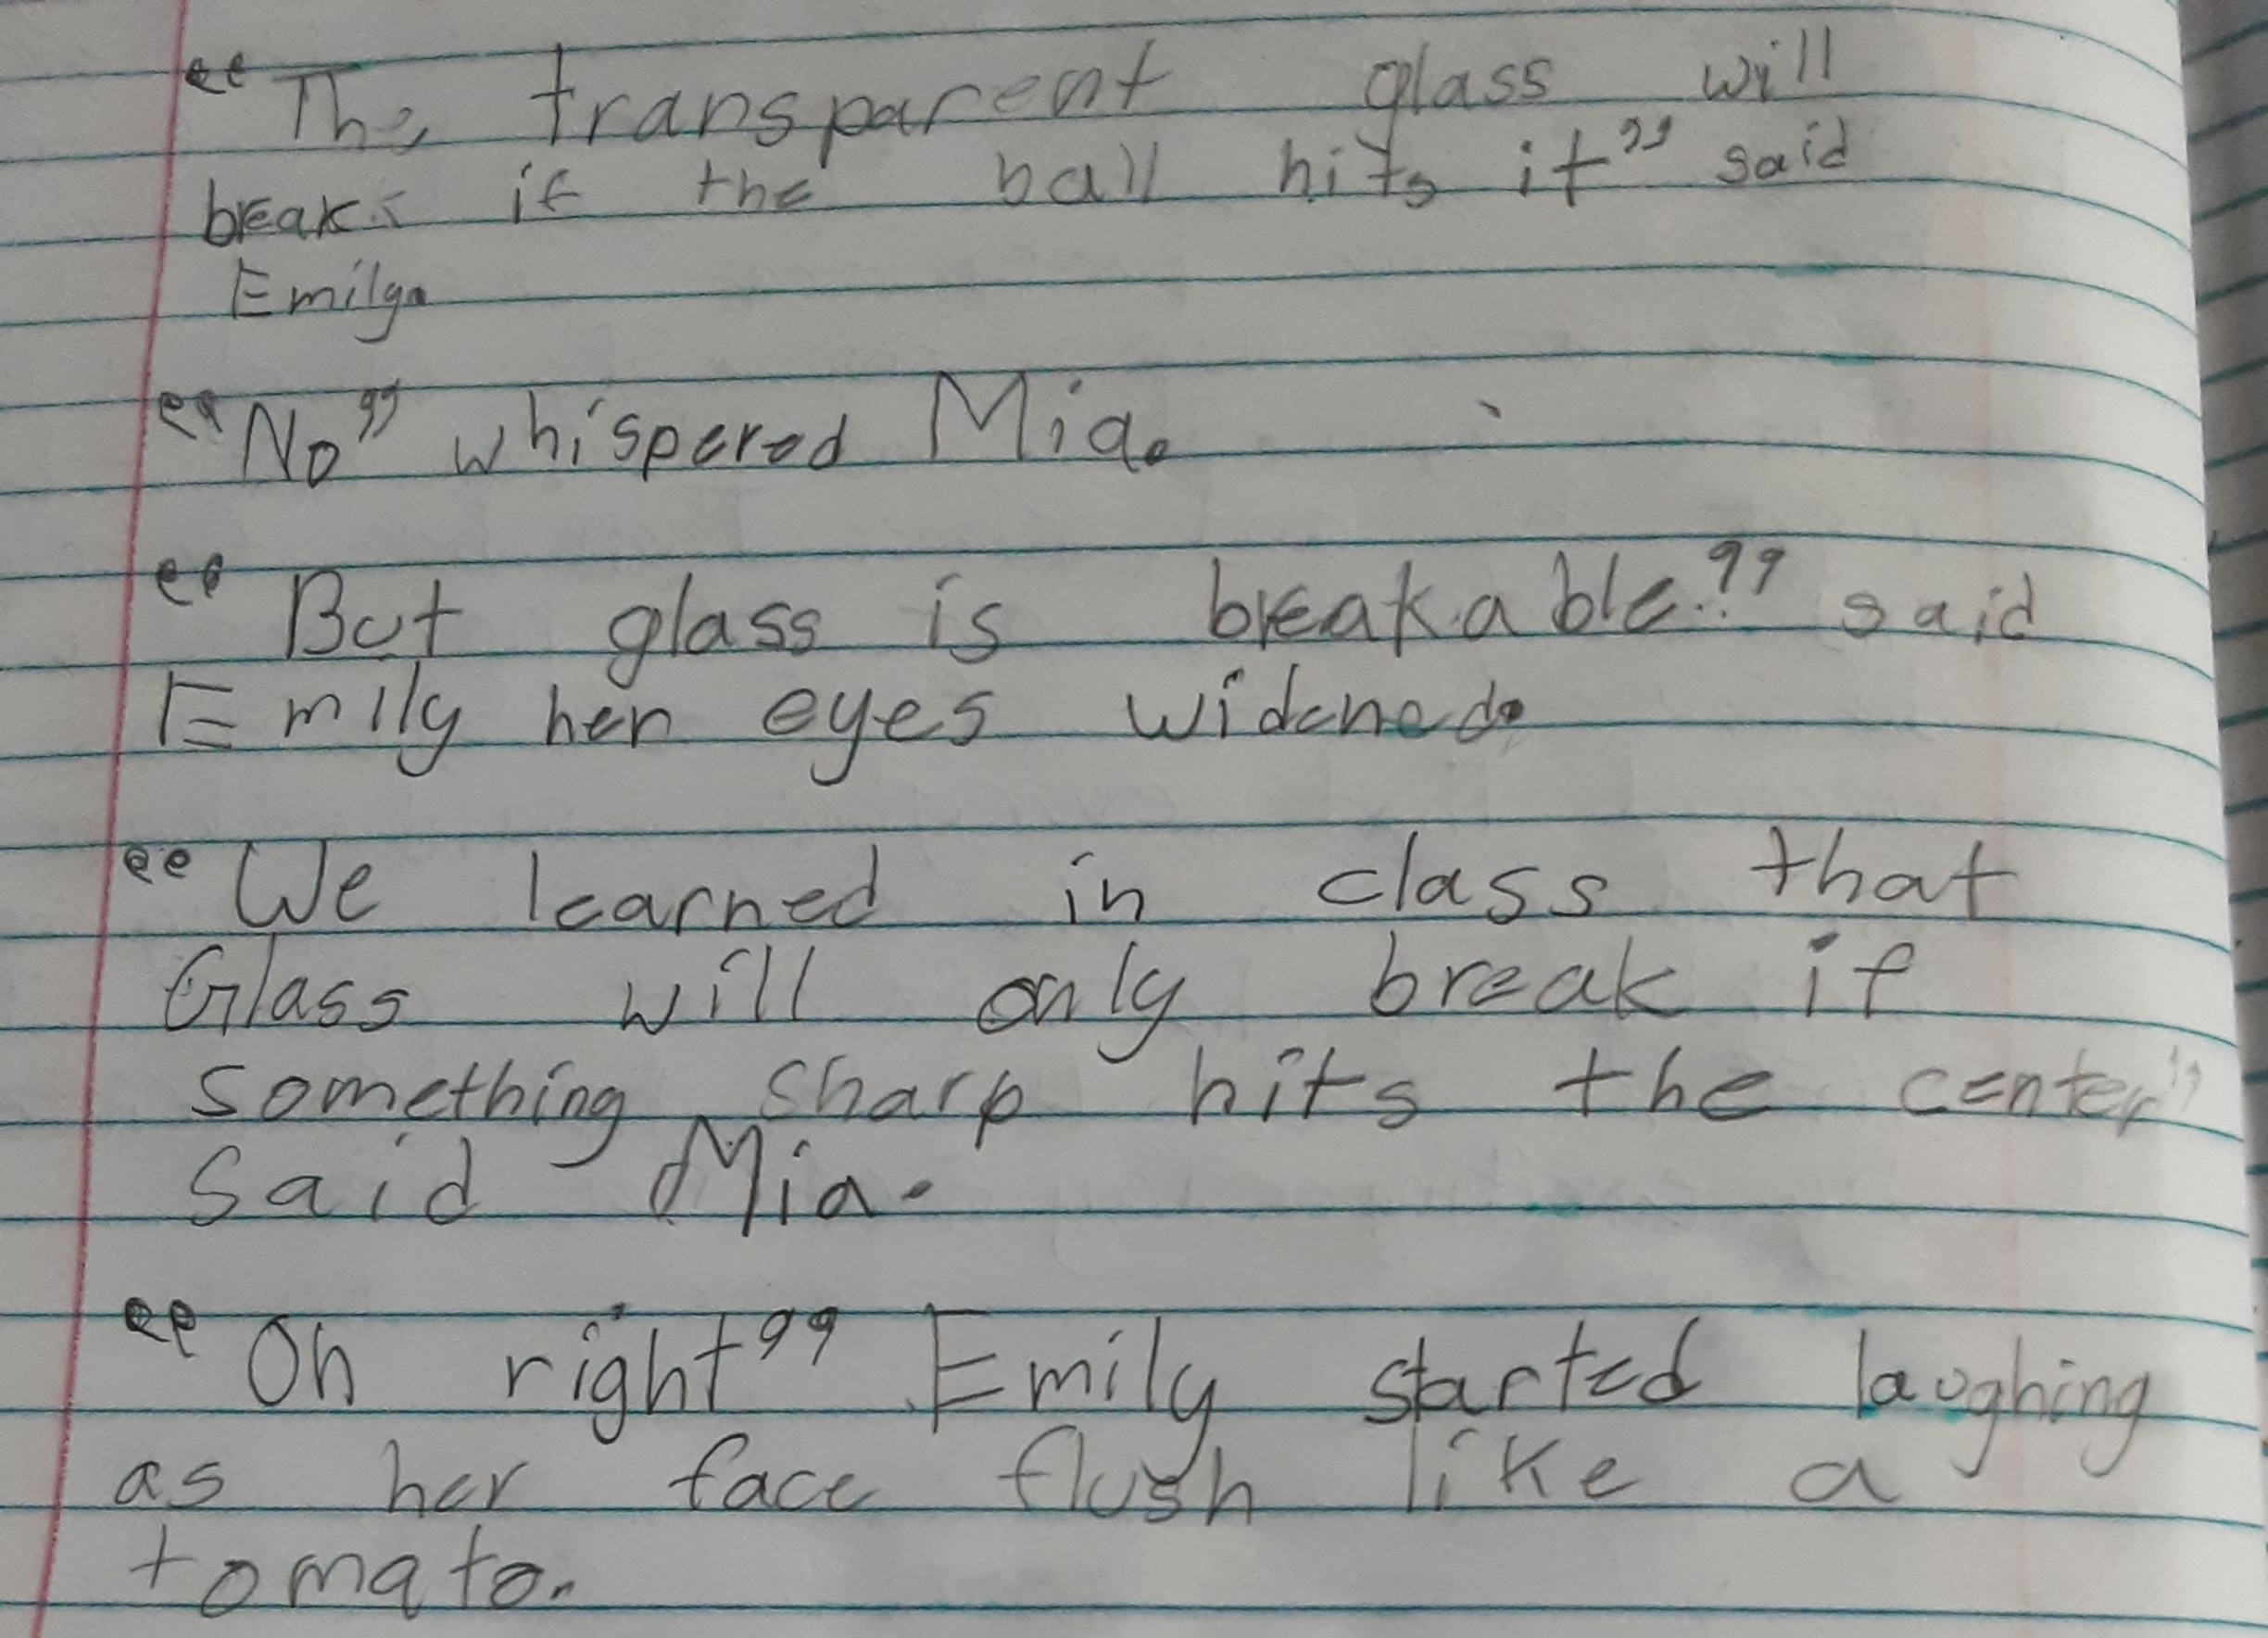 "The transparent glass will
breaks if the ball hits it" said
Emily.
"No" whispered Mia.
"But glass is breakable!" said
Emily her eyes widened.
"We learned in class that
Glass will only break if
something sharp hits the center"
said Mia.
"Oh right" Emily started laughing
as her face flush like a
tomato.